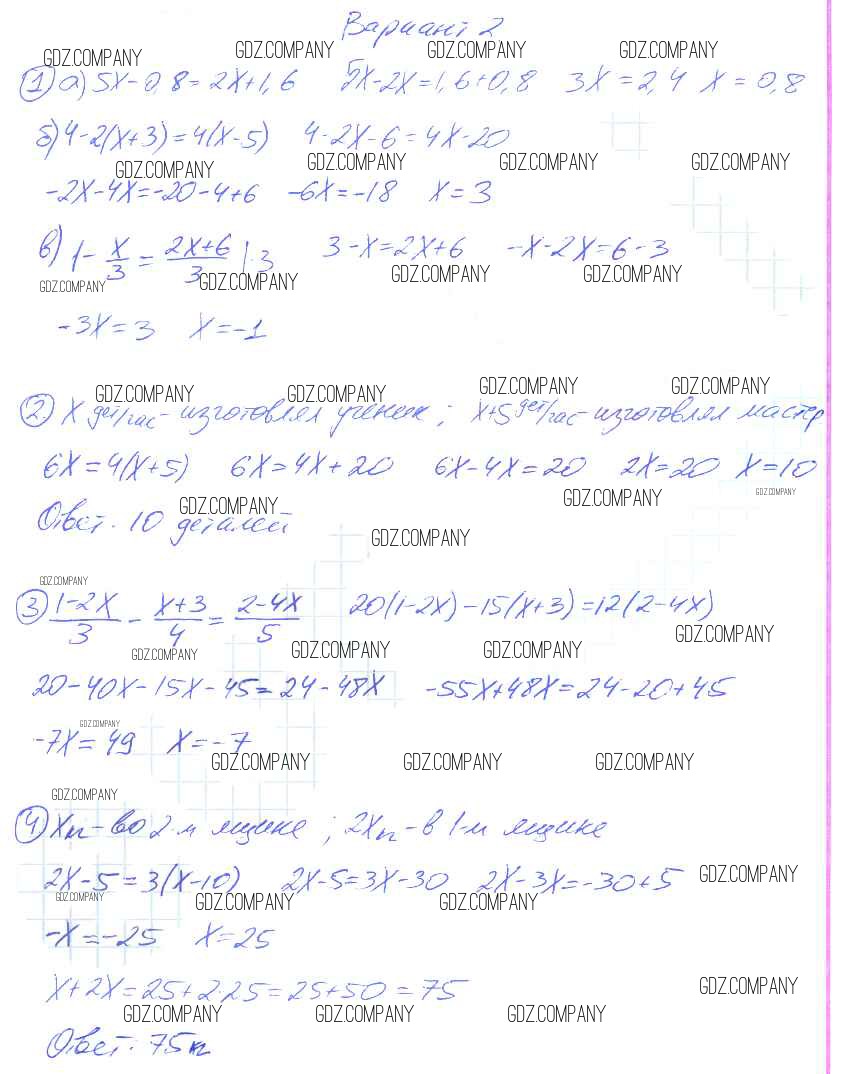 Вариант 2
GDZ.COMPANY GDZ.COMPANY GDZ.COMPANY GDZ.COMPANY
1 а) 5х-0,8=2х+1,6 5х-2х=1,6+0,8 3х=2,4 х=0,8
б) 4-2(х+3)=4(х-5) 4-2х-6=4х-20
GDZ.COMPANY GDZ.COMPANY GDZ.COMPANY GDZ.COMPANY
-2х-4х=-20-4+6 -6х=-18 х=3
в) 1 - х/3 = (2х+6)/3 |·3 3-х=2х+6 -х-2х=6-3
GDZ.COMPANY GDZ.COMPANY GDZ.COMPANY GDZ.COMPANY
-3х=3 х=-1
GDZ.COMPANY GDZ.COMPANY GDZ.COMPANY GDZ.COMPANY
2. х дет/час - изготовлял ученик; х+5 дет/час - изготовлял мастер
6х=4(х+5) 6х=4х+20 6х-4х=20 2х=20 х=10
GDZ.COMPANY GDZ.COMPANY GDZ.COMPANY
Ответ. 10 деталей
GDZ.COMPANY
GDZ.COMPANY
3 (1-2х)/3 - (х+3)/4 = (2-4х)/5 20(1-2х)-15(х+3)=12(2-4х)
GDZ.COMPANY GDZ.COMPANY GDZ.COMPANY GDZ.COMPANY
20-40х-15х-45=24-48х -55х+48х=24-20+45
GDZ.COMPANY
-7х=49 х=-7
GDZ.COMPANY GDZ.COMPANY GDZ.COMPANY
GDZ.COMPANY
4) хк - во 2-м ящике; 2хк - в 1-м ящике
2х-5=3(х-10) 2х-5=3х-30 2х-3х=-30+5 GDZ.COMPANY
GDZ.COMPANY GDZ.COMPANY GDZ.COMPANY
-х=-25 х=25
х+2х=25+2·25=25+50=75 GDZ.COMPANY
GDZ.COMPANY GDZ.COMPANY GDZ.COMPANY
Ответ. 75к